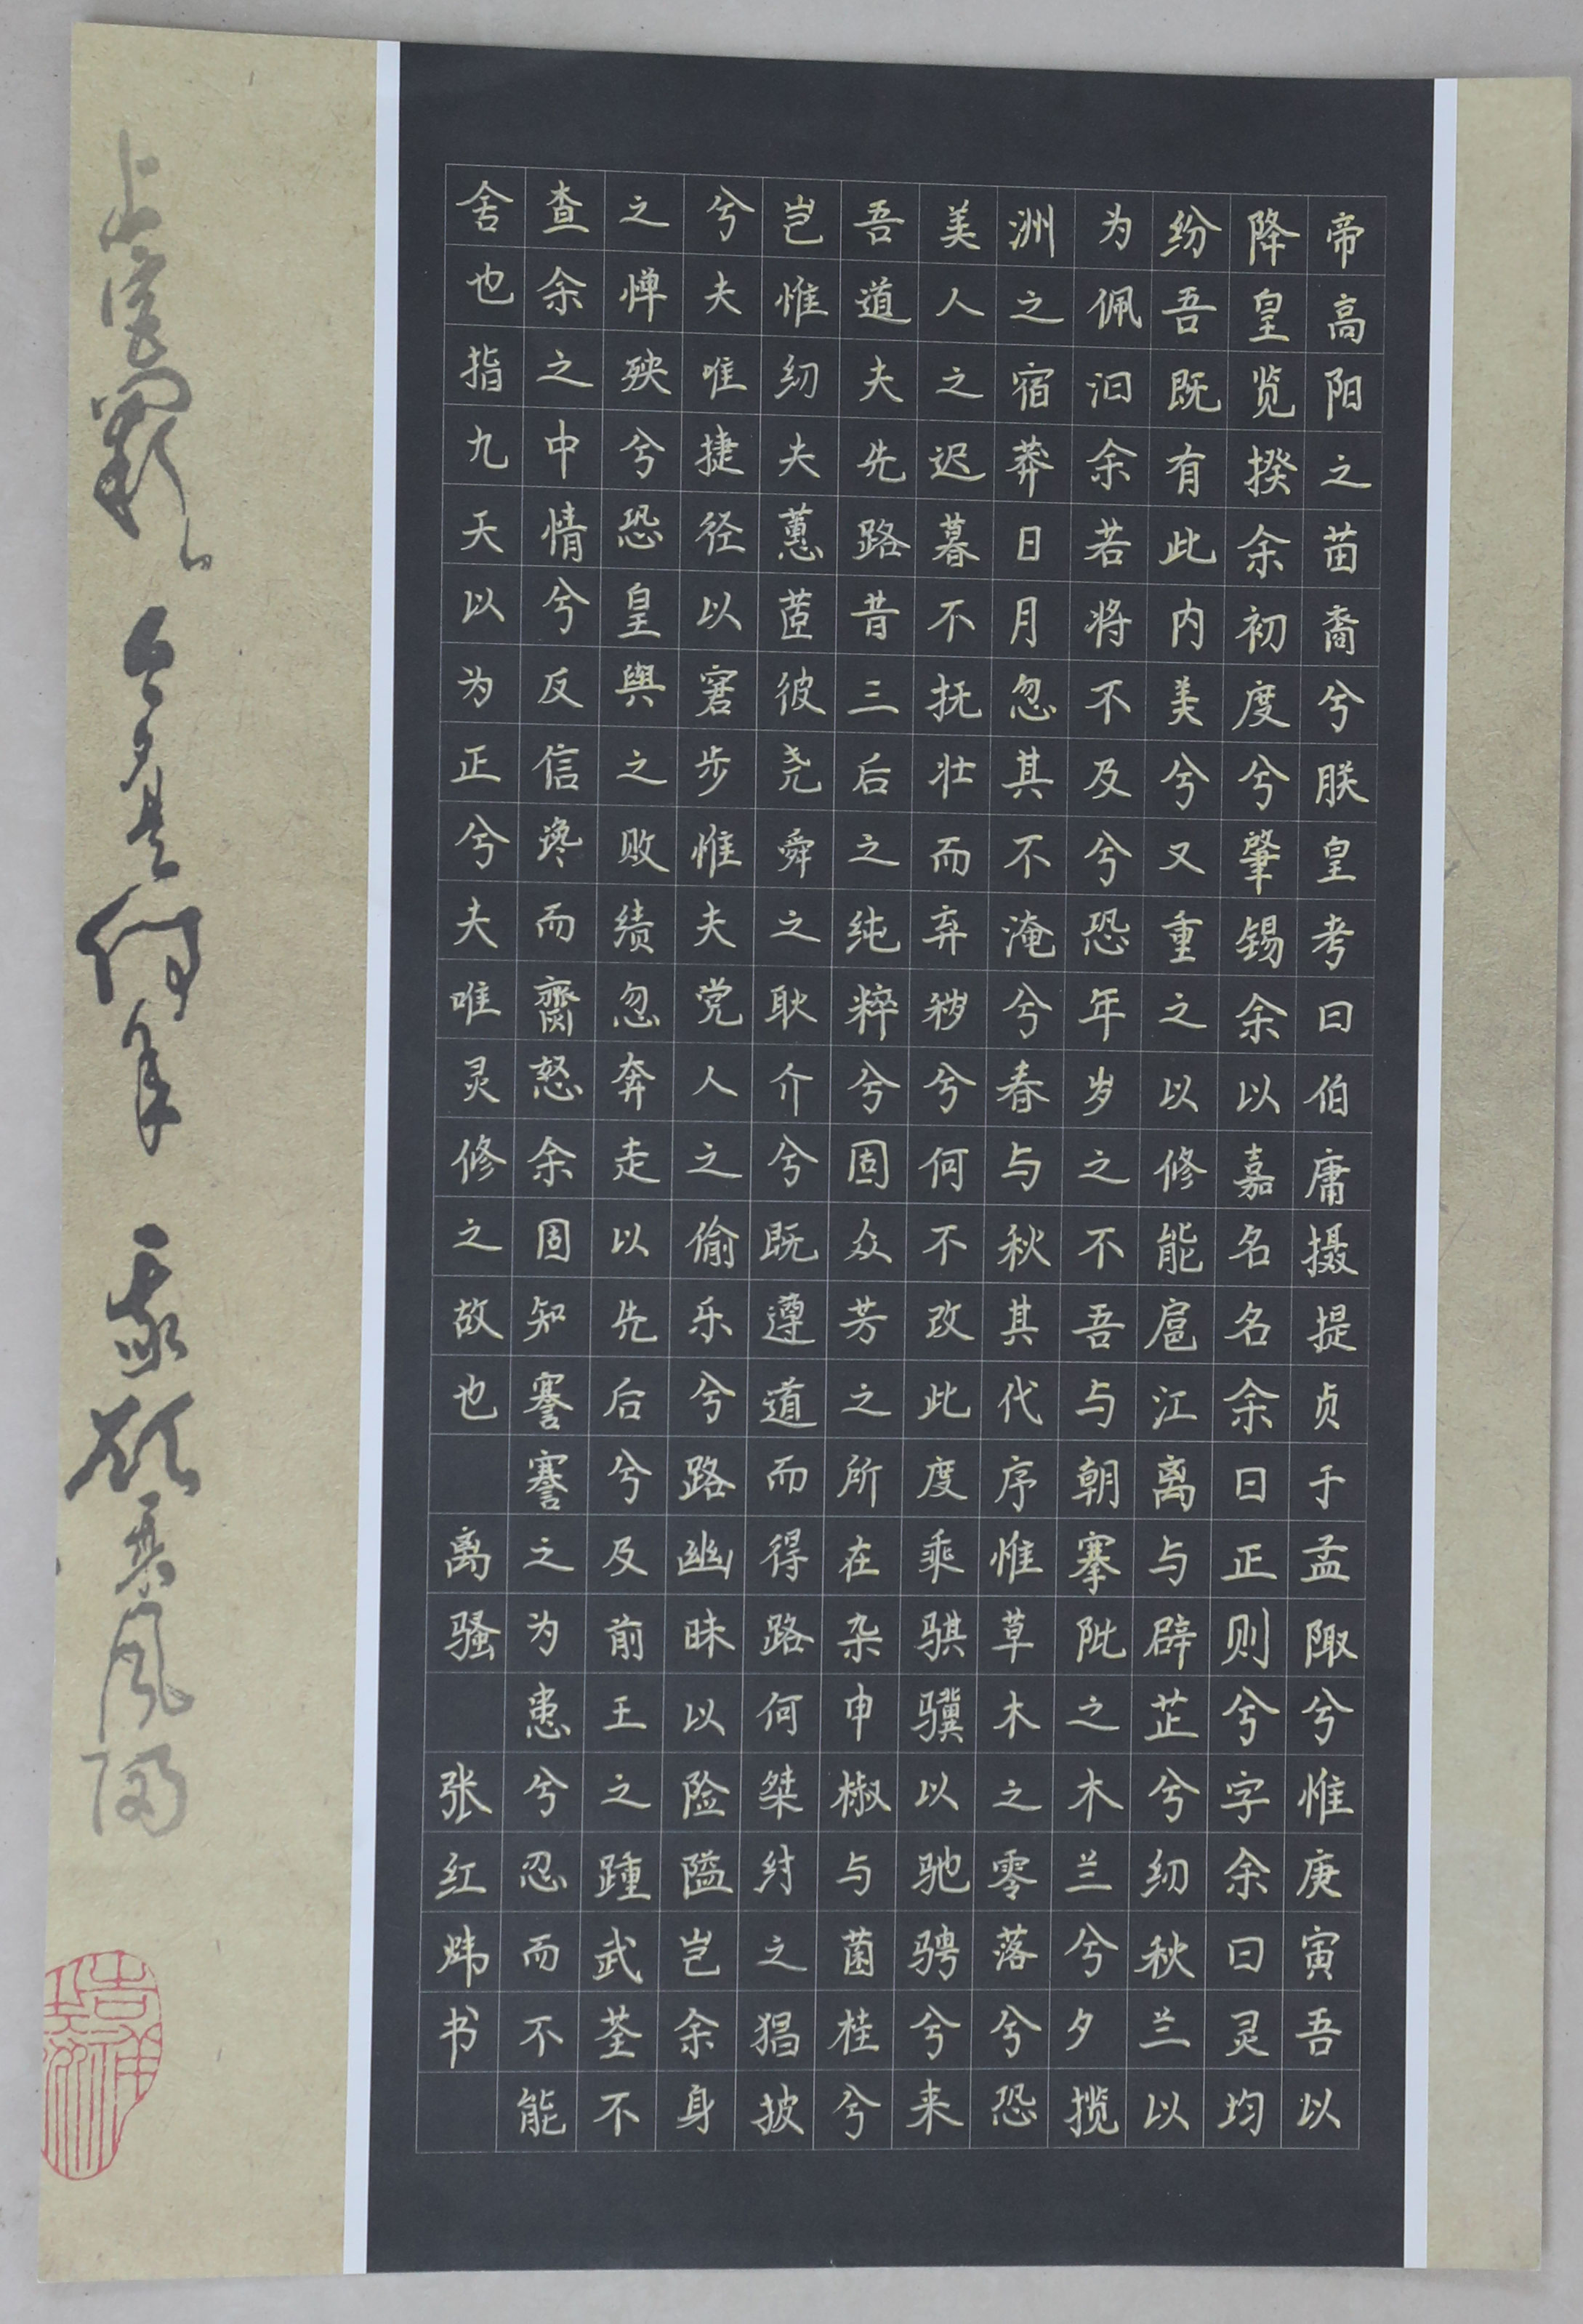 帝高阳之苗裔兮朕皇考曰伯庸摄提贞于孟陬兮惟庚寅吾以
降皇览揆余初度兮肇锡余以嘉名名余曰正则兮字余曰灵均
纷吾既有此内美兮又重之以修能扈江离与辟芷兮纫秋兰以
为佩汩余若将不及兮恐年岁之不吾与朝搴阰之木兰兮夕揽
洲之宿莽日月忽其不淹兮春与秋其代序惟草木之零落兮恐
美人之迟暮不抚壮而弃秽兮何不改此度乘骐骥以驰骋兮来
吾道夫先路昔三后之纯粹兮固众芳之所在杂申椒与菌桂兮
岂惟纫夫蕙茝彼尧舜之耿介兮既遵道而得路何桀纣之猖披
兮夫唯捷径以窘步惟夫党人之偷乐兮路幽昧以险隘岂余身
之惮殃兮恐皇舆之败绩忽奔走以先后兮及前王之踵武荃不
查余之中情兮反信谗而齌怒余固知謇謇之为患兮忍而不能
舍也指九天以为正兮夫唯灵修之故也 离骚 张红炜书